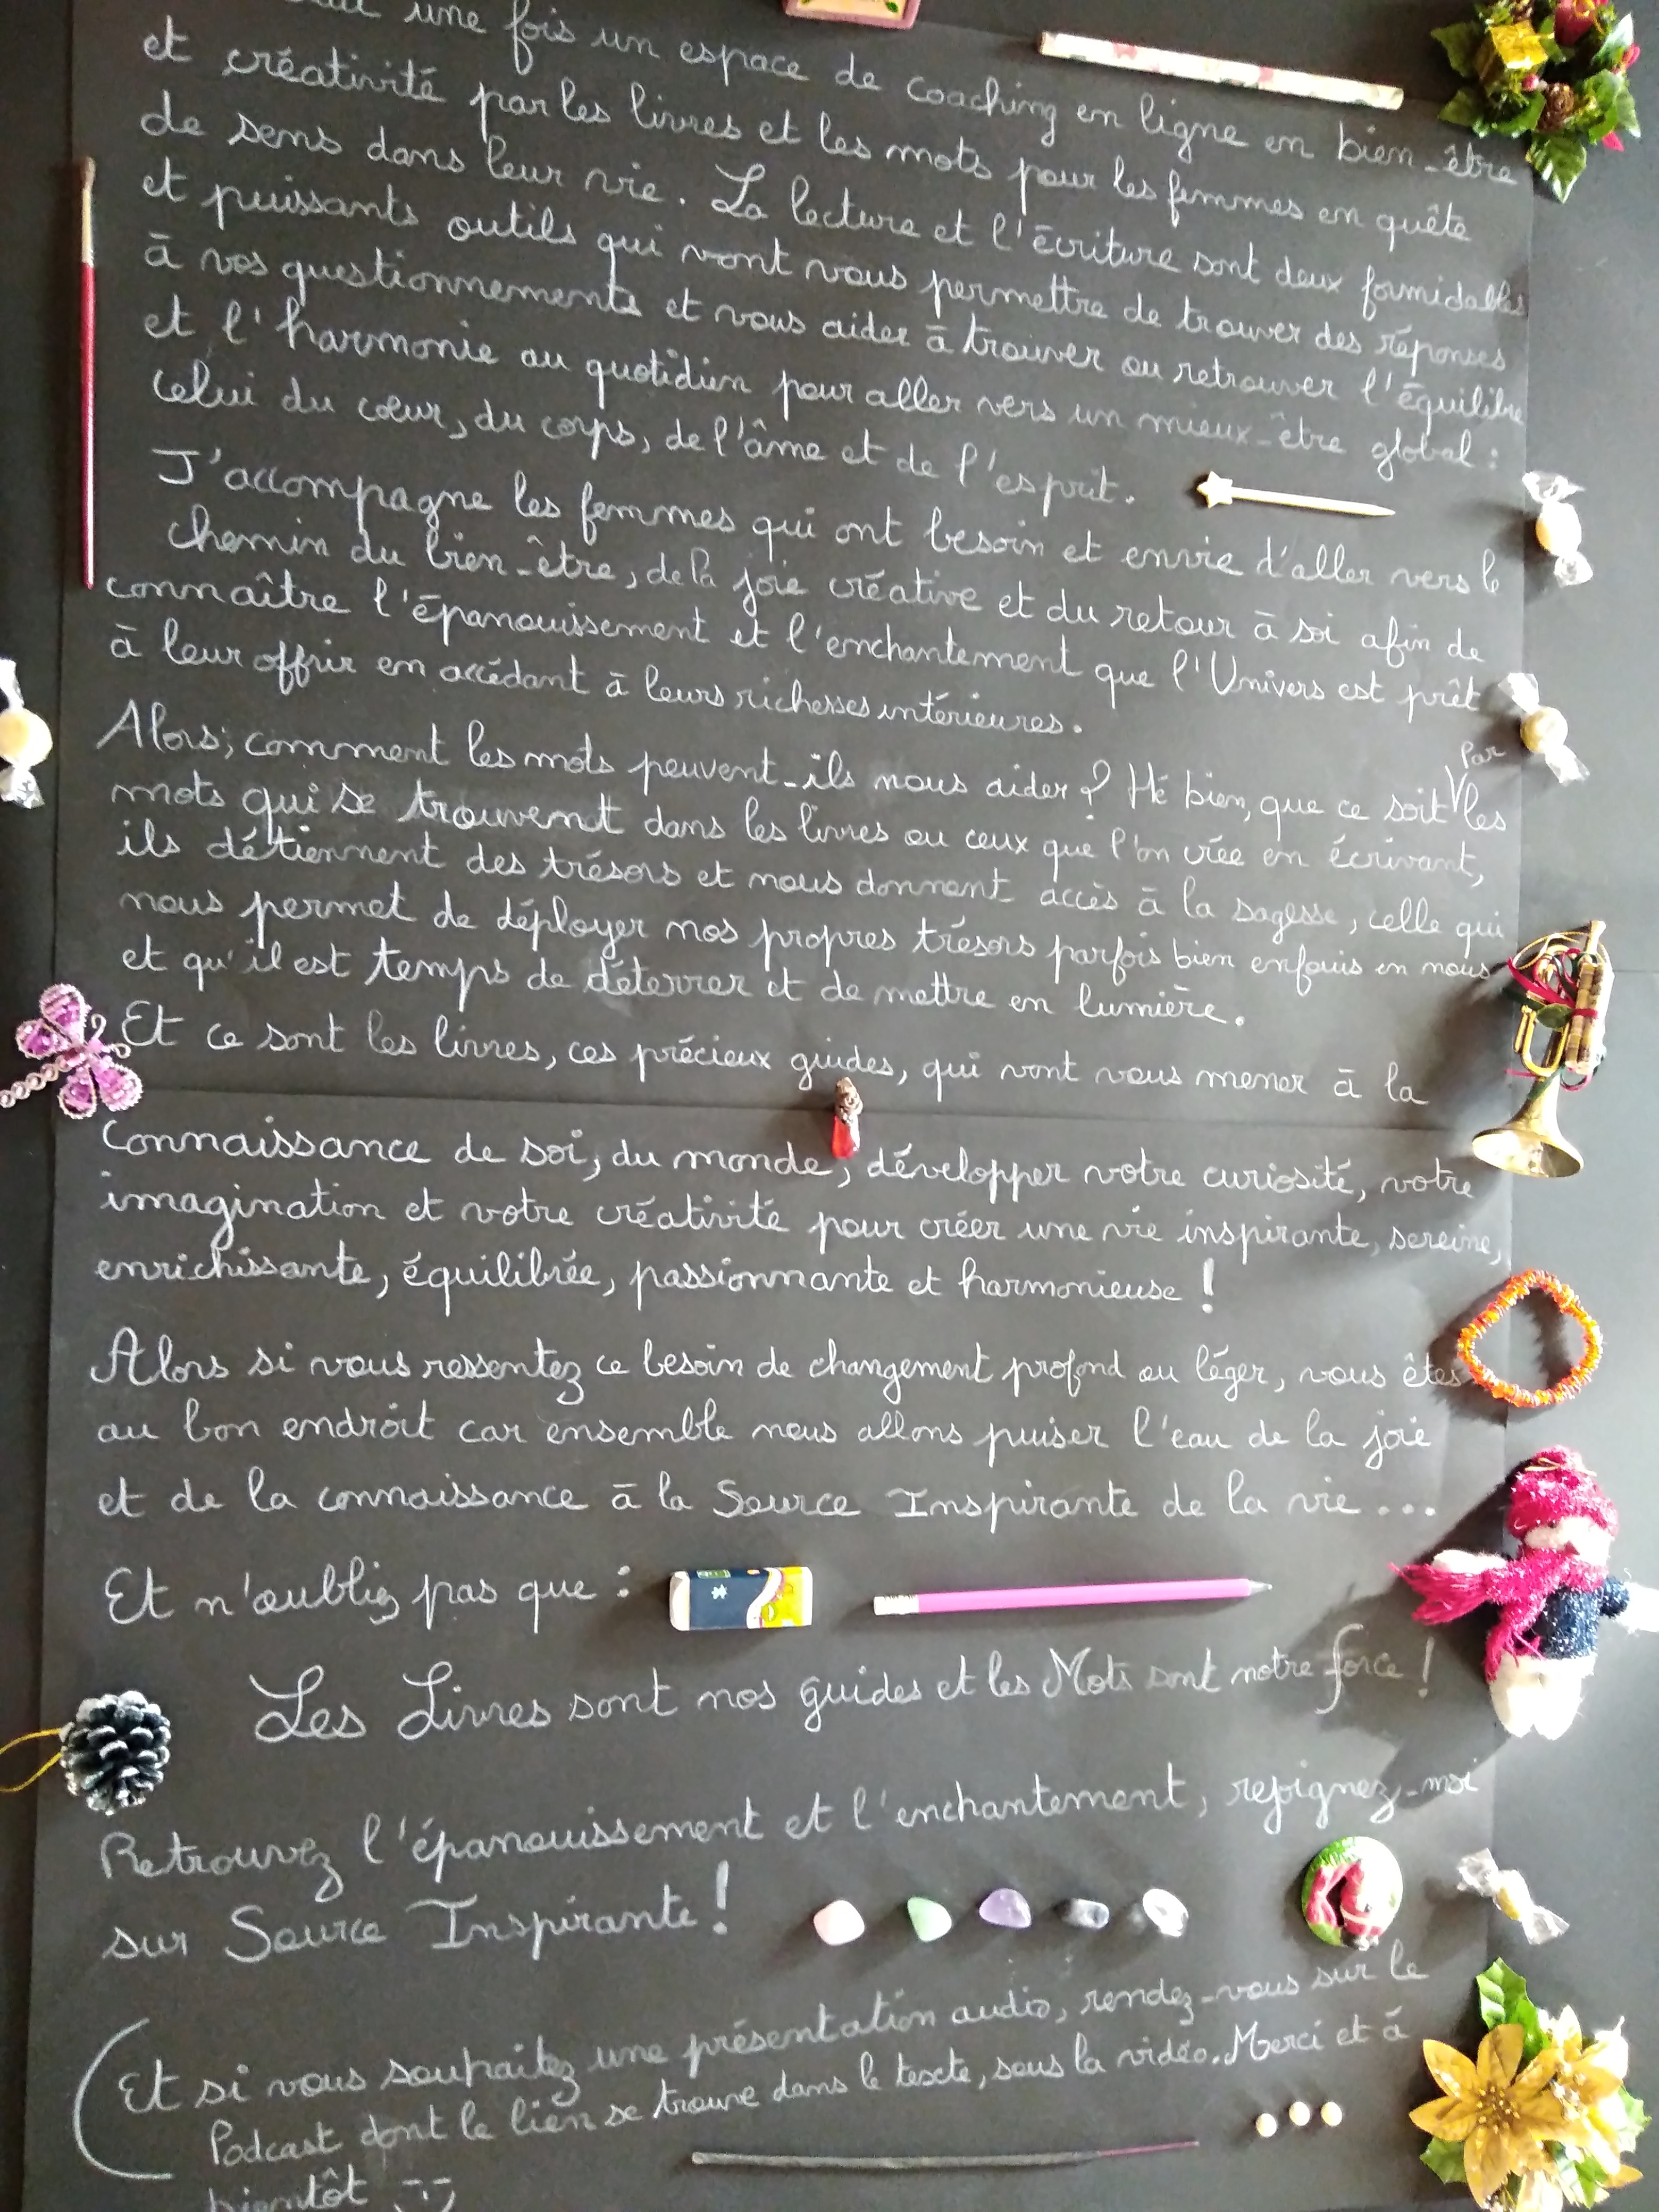 une fois un espace de coaching en ligne en bien-être
et créativité par les livres et les mots pour les femmes en quête
de sens dans leur vie. La lecture et l'écriture sont deux formidables
et puissants outils qui vont vous permettre de trouver des réponses
à vos questionnements et vous aider à trouver ou retrouver l'équilibre
et l'harmonie au quotidien pour aller vers un mieux-être global :
celui du cœur, du corps, de l'âme et de l'esprit.
J'accompagne les femmes qui ont besoin et envie d'aller vers le
chemin du bien-être, de la joie créative et du retour à soi afin de
connaître l'épanouissement et l'enchantement que l'Univers est prêt
à leur offrir en accédant à leurs richesses intérieures.
Alors, comment les mots peuvent-ils nous aider ? Hé bien, que ce soit par les
mots qui se trouvent dans les livres ou ceux que l'on crée en écrivant,
ils détiennent des trésors et nous donnent accès à la sagesse, celle qui
nous permet de déployer nos propres trésors parfois bien enfouis en nous
et qu'il est temps de déterrer et de mettre en lumière.
Et ce sont les livres, ces précieux guides, qui vont vous mener à la
Connaissance de soi, du monde, développer votre curiosité, votre
imagination et votre créativité pour créer une vie inspirante, sereine,
enrichissante, équilibrée, passionnante et harmonieuse !
Alors si vous ressentez ce besoin de changement profond ou léger, vous êtes
au bon endroit car ensemble nous allons puiser l'eau de la joie
et de la connaissance à la Source Inspirante de la vie...
Et n'oubliez pas que :
Les Livres sont nos guides et les Mots sont notre force !
Retrouvez l'épanouissement et l'enchantement, rejoignez-moi
sur Source Inspirante !
(Et si vous souhaitez une présentation audio, rendez-vous sur le
Podcast dont le lien se trouve dans le texte, sous la vidéo. Merci et à
bientôt :-)